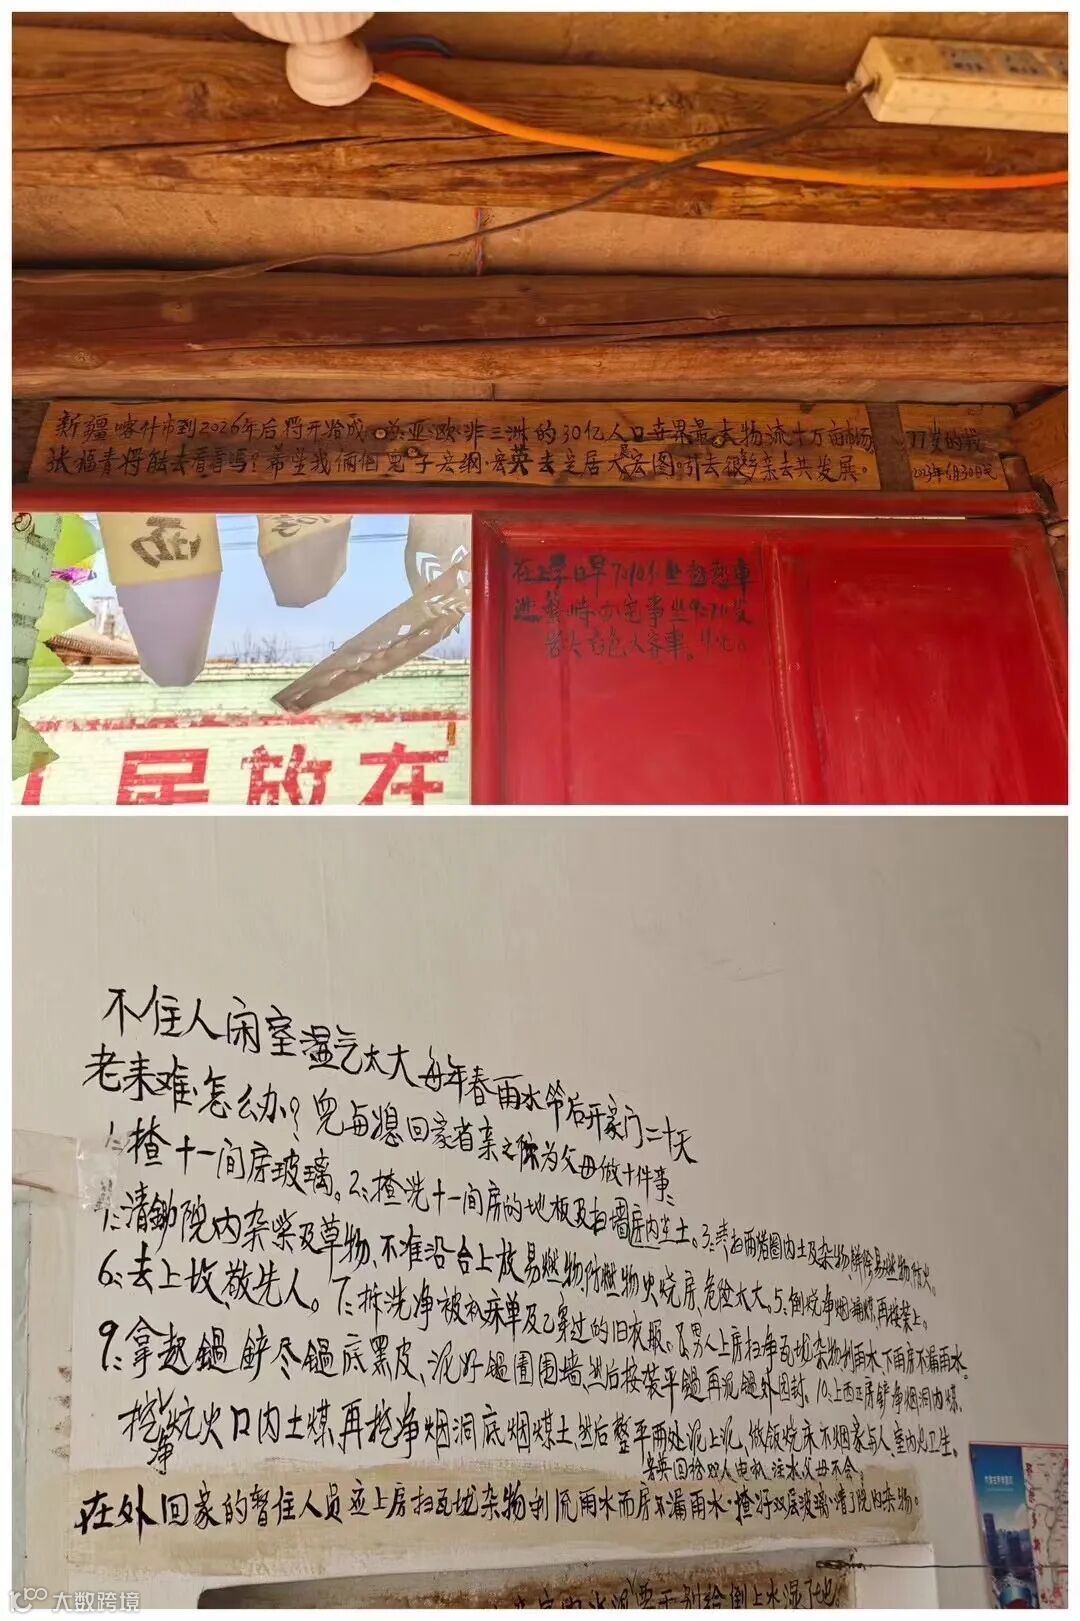 新疆喀什市到2026年后将开始成为亚欧非三洲的30亿人口世界最大物流十万亩市场
张福青将能去看看吗？希望我俩个儿子宏纲·宏英去定居大展宏图。引去很多乡亲去共发展。
77岁的我
2023年6月30日戌
福
人居放在
不住人闲室湿气太大每年春雨水节后开家门二十天
老来难·怎么办？儿与媳回家省亲之际为父母做十件事：
1：揸十一间房玻璃。2：揸洗十一间房的地板及扫墙房内尘土。3：扫两猪圈内土及杂物，铲除易燃物防火。
清锄院内杂柴及草物、不准沿台上放易燃物，防燃物火烧房，危险太大。5：倒烧净烟煤，再按装上。
6：去上坟，敬先人。7：拆洗净被衣床单及已穿过的旧衣服。8、男人上房扫净瓦垅杂物利雨水，下雨房不漏雨水。
9：拿起锅铲尽锅底黑皮、泥好锅围围墙，然后按装平锅再泥锅外围封。10：上西正房铲净烟洞内煤，
挖净炕火口内土煤再挖净烟洞底烟煤土，然后整平两处泥上泥，做饭烧床不烟家与人，室内也卫生。
宏英回给双人电机注水，父母不会。
在外回家的暂住人员应上房扫瓦垅杂物利流雨水而房不漏雨水·揸好双层玻璃·清了院内杂物。
大数跨境